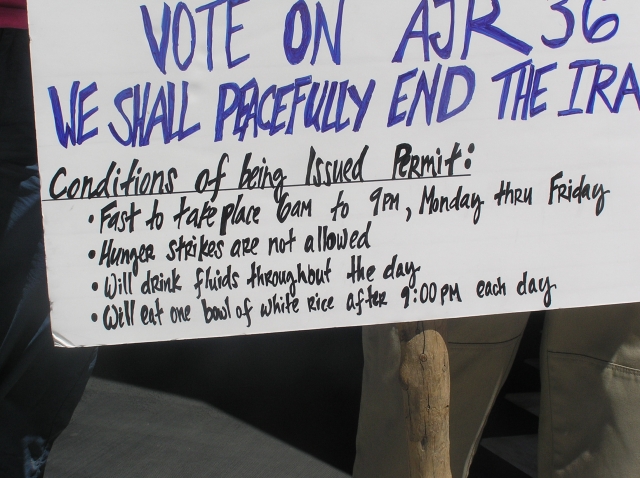 VOTE ON AJR 36
WE SHALL PEACEFULLY END THE IRA
Conditions of being Issued Permit:
• Fast to take place 6am to 9pm, Monday thru Friday
• Hunger strikes are not allowed
• Will drink fluids throughout the day
• Will eat one bowl of white rice after 9:00 PM each day